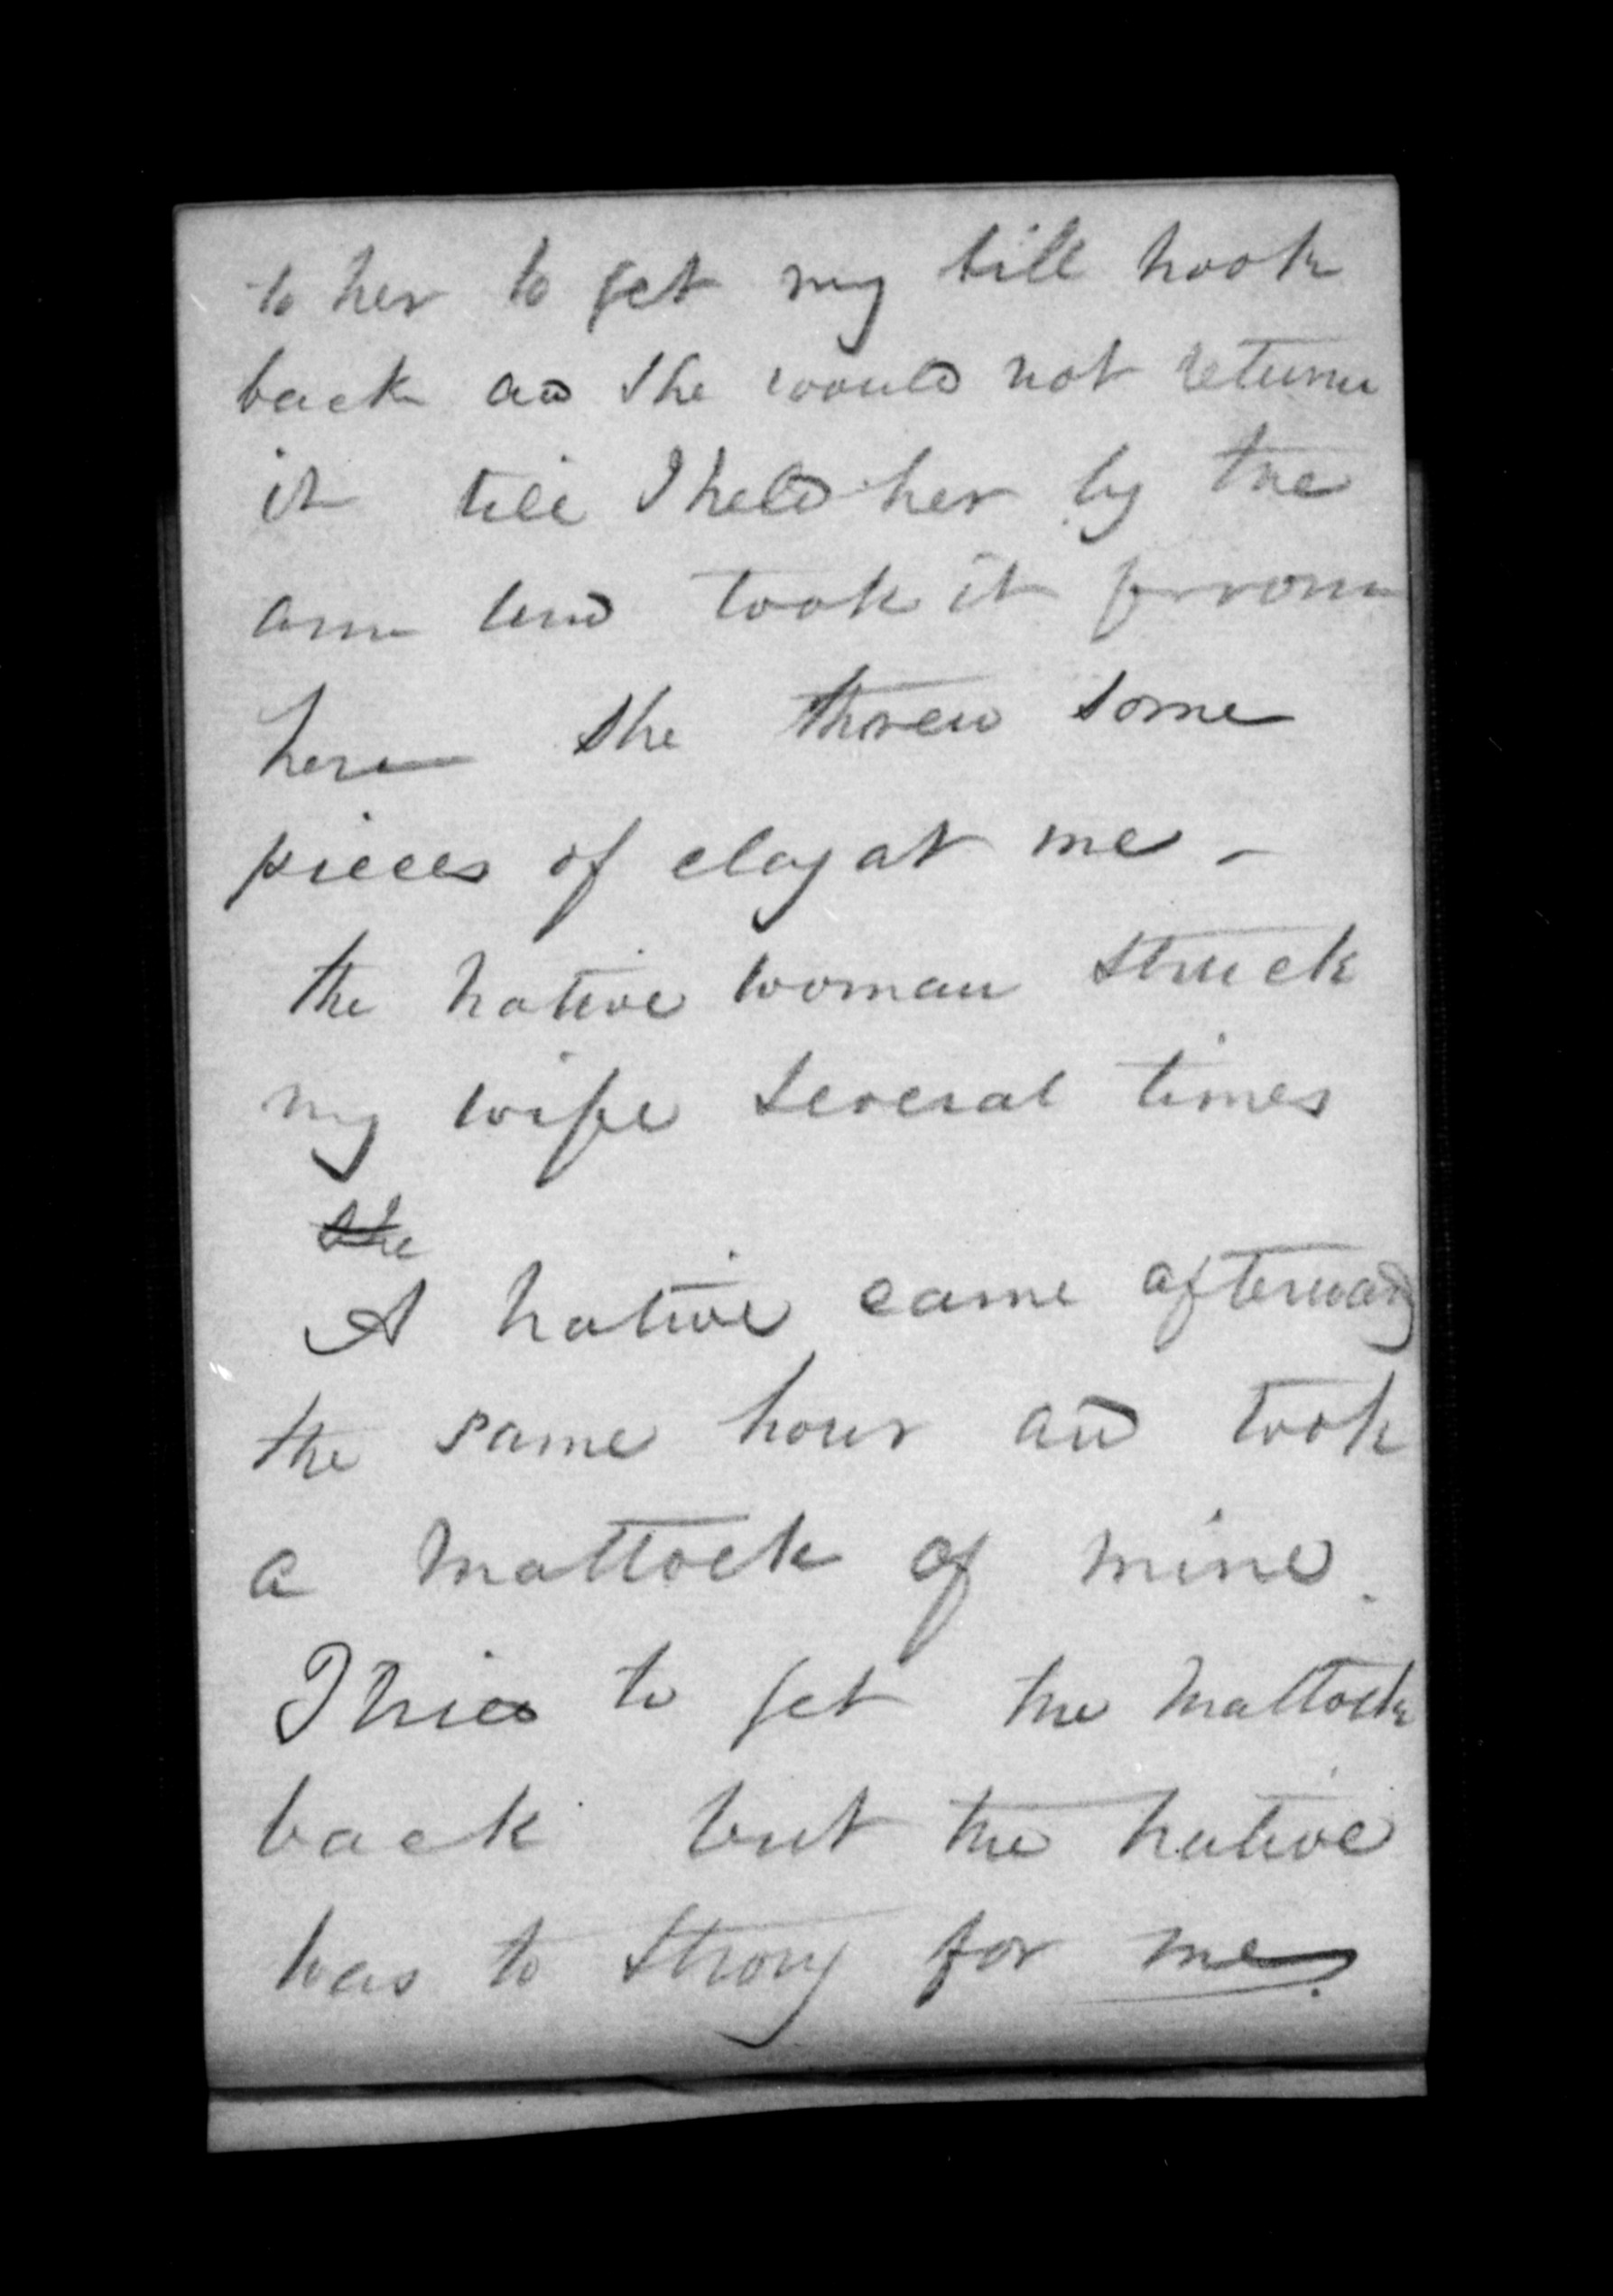 to her to get my bill hook
back and she would not return
it till I held her by the
arm and took it from
her she threw some
pieces of clay at me -
the native woman struck
my wife several times
she
A native came afterwards
the same hour and took
a mattock of mine.
I tried to get the mattock
back but the native
was to strong for me.